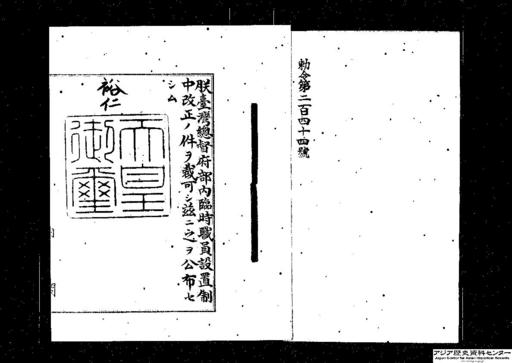 勅令第二百四十四號
朕臺灣總督府部內臨時職員設置制
中改正ノ件ヲ裁可シ茲ニ之ヲ公布セ
シム
裕仁
天皇
御璽
アジア歴史資料センター
Japan Center for Asian Historical Records